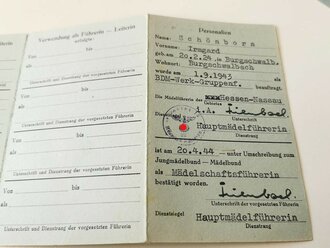 Verwendung als Führerin — Leiterin
erfolgte:
Von bis
als
Unterschrift und Dienstrang der vorgesetzten Führerin
Von bis
als
Unterschrift und Dienstrang der vorgesetzten Führerin
Von bis
als
Unterschrift und Dienstrang der vorgesetzten Führerin
Von bis
als
Unterschrift und Dienstrang der vorgesetzten Führerin
Von bis
als
Unterschrift und Dienstrang der vorgesetzten Führerin
Personalien
Name: Schönborn
Vorname: Irmgard
geb. am 20.2.24 in Burgschwalb.
Wohnort: Burgschwalbach
wurde am 1.9.1943 als
BDM-Werk-Gruppenf. beauftragt.
Die Mädelführerin des Hessen-Nassau
i.A.
Unterschrift
Hauptmädelführerin
Dienstrang
ist am 20.4.44 — unter Umschreibung zum
Jungmädelbund — Mädelbund
als Mädelschaftsführerin
bestätigt worden.
Unterschrift der vorgesetzten Führerin
Dienstsiegel Hauptmädelführerin
Dienstrang